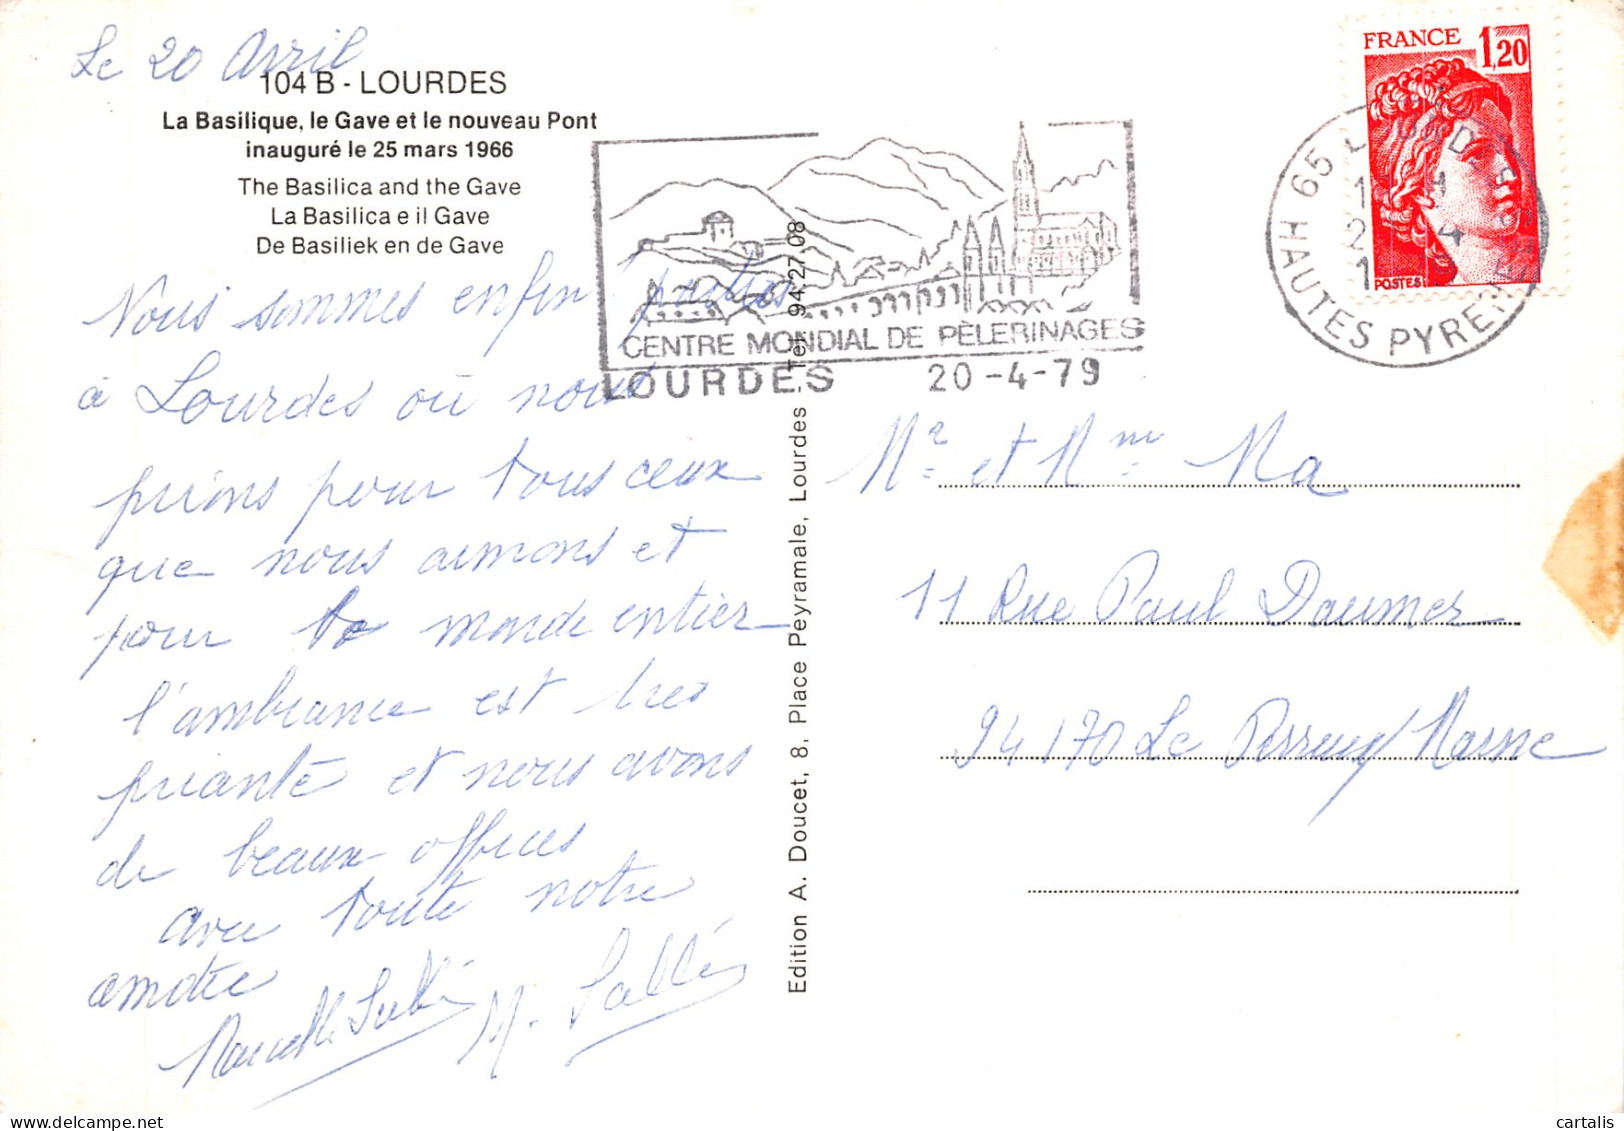 Le 20 Avril
104 B - LOURDES
La Basilique, le Gave et le nouveau Pont
inauguré le 25 mars 1966
The Basilica and the Gave
La Basilica e il Gave
De Basiliek en de Gave
Nous sommes enfin
à Lourdes où nous
prions pour tous ceux
que nous aimons et
pour le monde entier
l'ambiance est très
priante et nous avons
de beaux offices
avec toute notre
amitié
Marcelle
M. Sallé
Edition A. Doucet, 8, Place Peyramale, Lourdes - Tel. 94.27.08
CENTRE MONDIAL DE PÈLERINAGES
LOURDES 20-4-79
FRANCE 1,20
POSTES
65 LOURDES
HAUTES PYRENEES
Mr et Mme Ma
11 Rue Paul Doumer
94170 Le Perreux/Marne
cartalis